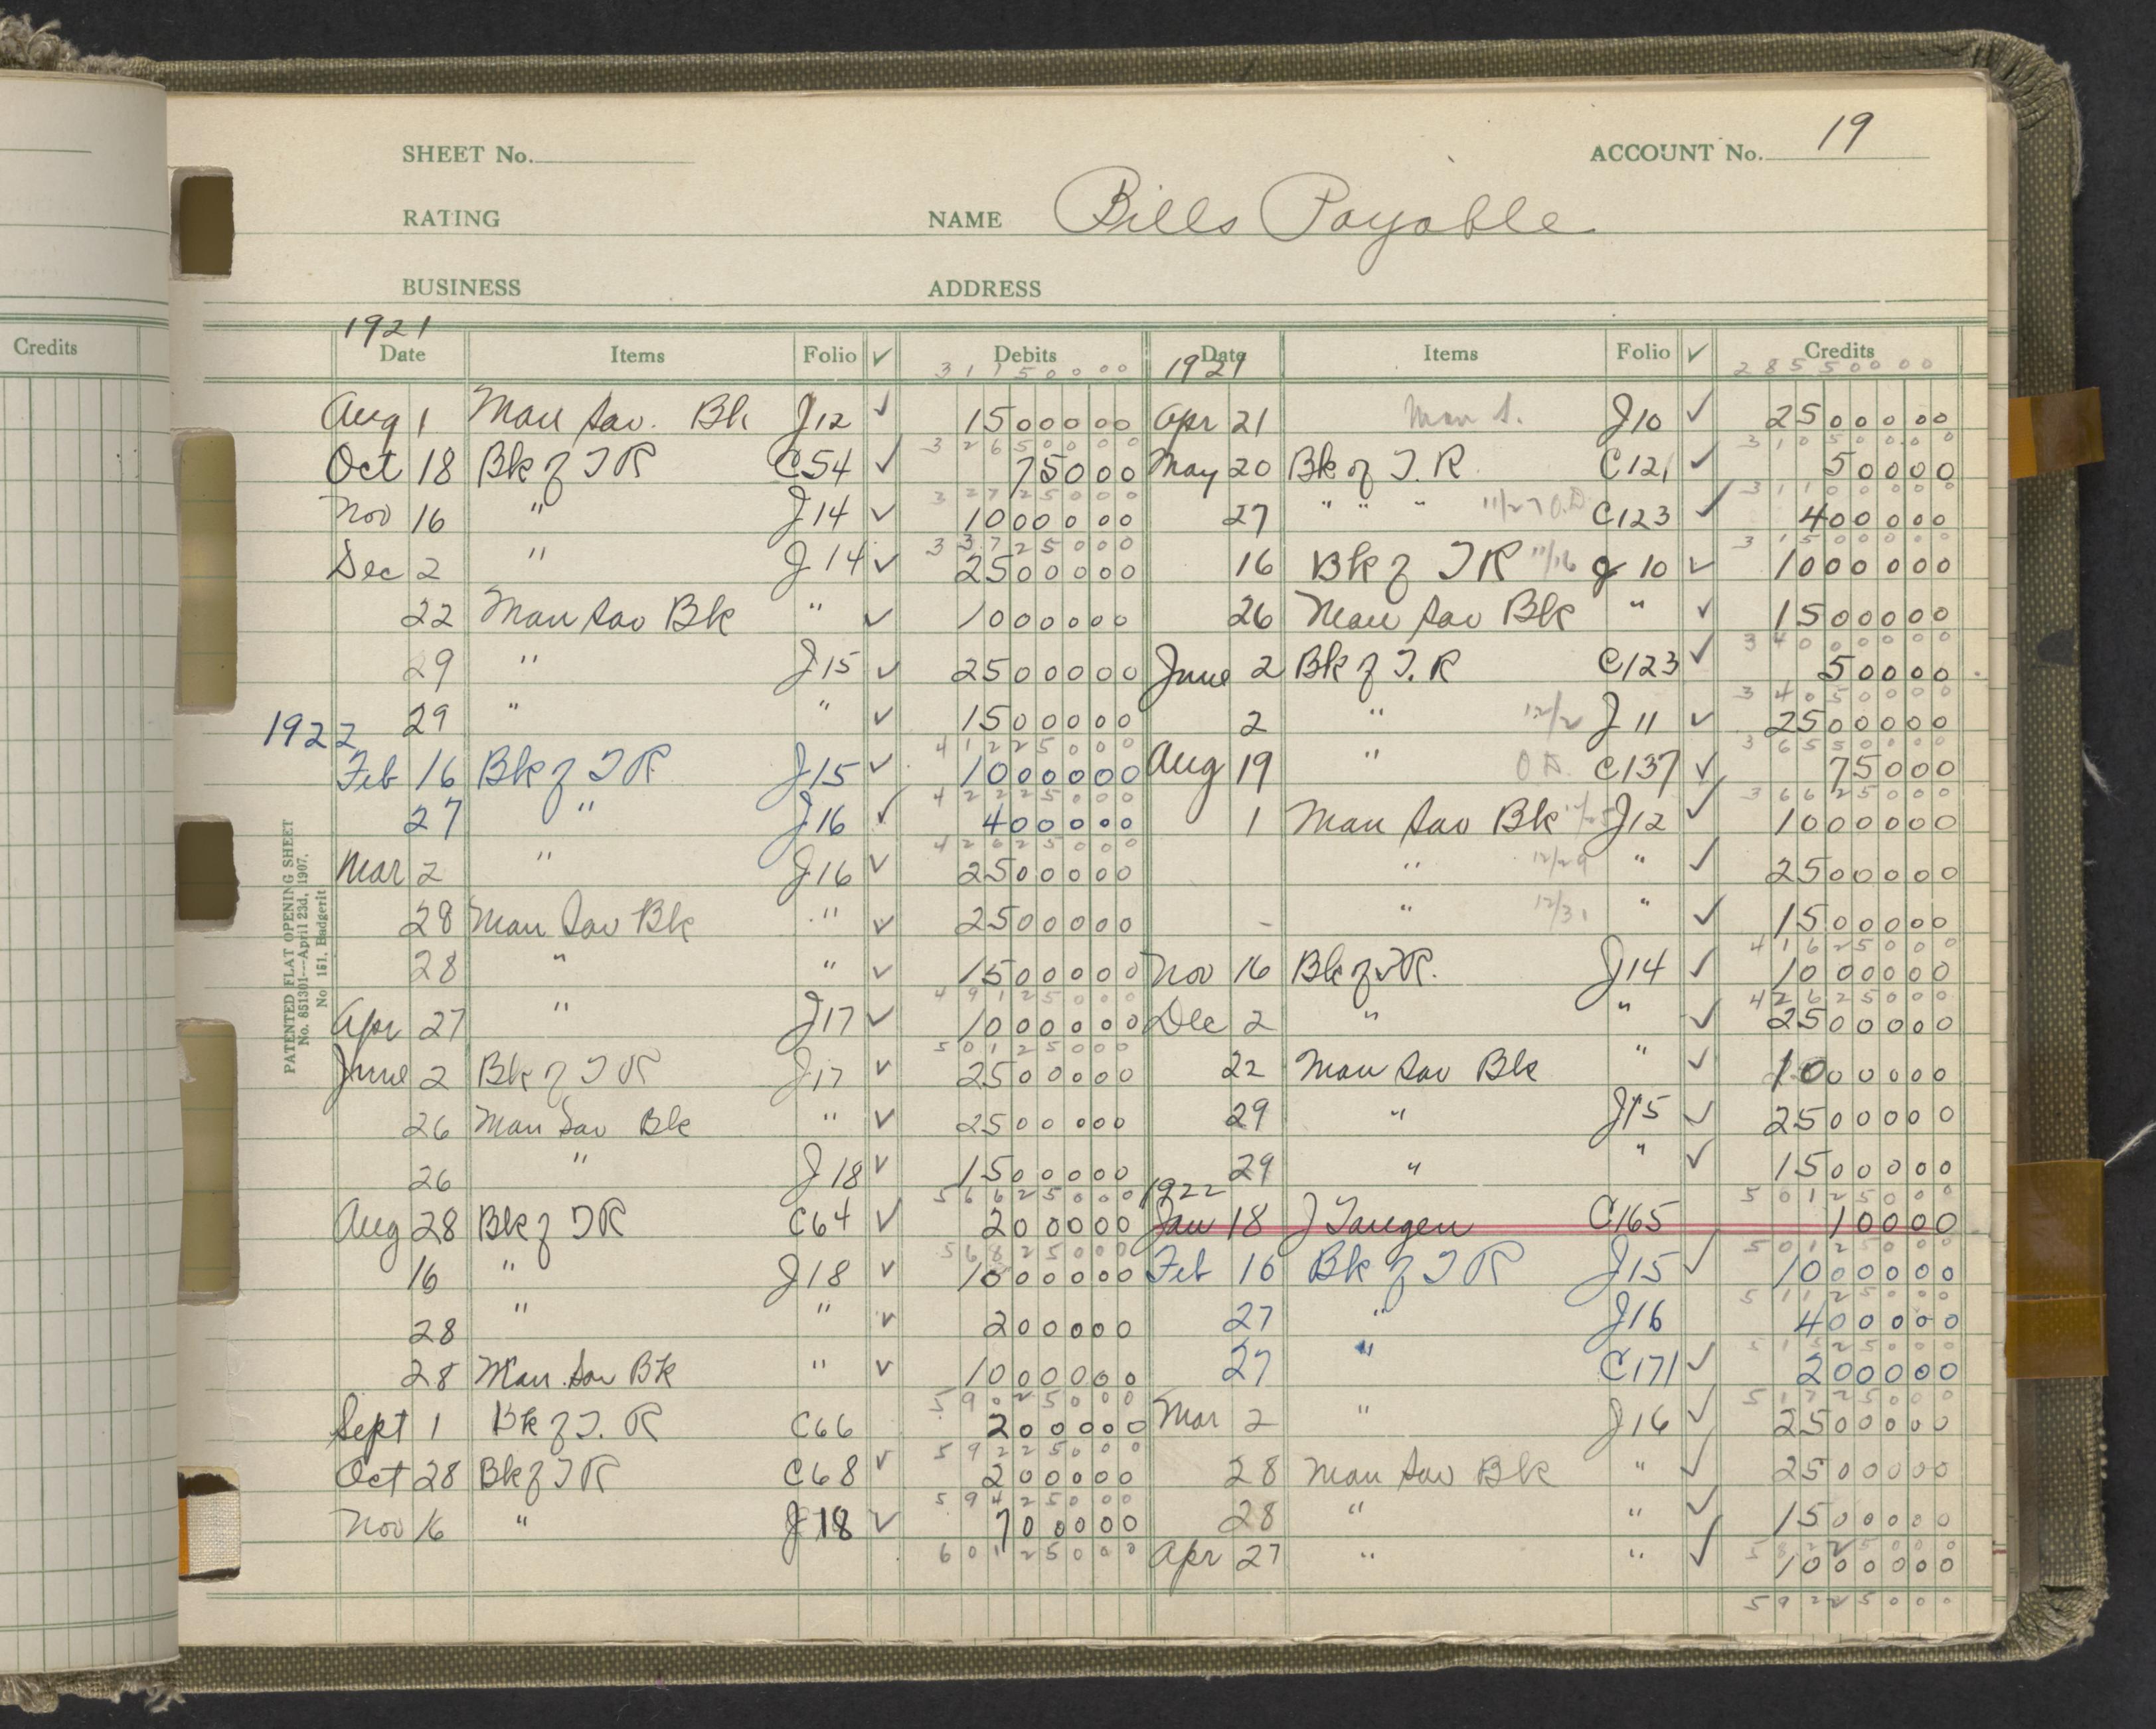 Credits
SHEET No. ACCOUNT No. 19
RATING NAME Bills Payable
BUSINESS ADDRESS
1921
Date Items Folio ✓ Debits Date Items Folio ✓ Credits
31150000 1921 28550000
Aug 1 Man Sav. Bk J12 ✓ 1500000 Apr 21 Man S. J10 ✓ 2500000
32650000 31050000
Oct 18 Bk of T R C54 ✓ 75000 May 20 Bk of T. R. C121 ✓ 50000
32725000 31100000
Nov 16 " J14 ✓ 1000000 27 " " " 11/27 O.D C123 ✓ 400000
33725000 31500000
Dec 2 " J14 ✓ 2500000 16 Bk of T R 11/16 J10 ✓ 1000000
22 Man Sav Bk " ✓ 1000000 26 Man Sav Bk " ✓ 1500000
34000000
29 " J15 ✓ 2500000 June 2 Bk of T. R C123 ✓ 50000
34050000
29 " " ✓ 1500000 2 " 12/2 J11 ✓ 2500000
1922
41225000 36550000
Feb 16 Bk of T R J15 ✓ 1000000 Aug 19 " O D. C137 ✓ 75000
42225000 36625000
27 " J16 ✓ 400000 1 Man Sav Bk J12 ✓ 1000000
42625000
Mar 2 " J16 ✓ 2500000 " 12/29 " ✓ 2500000
28 Man Sav Bk " ✓ 2500000 " 12/31 " ✓ 1500000
41625000
28 " " ✓ 1500000 Nov 16 Bk of TR. J14 ✓ 1000000
49125000 42625000
Apr 27 " J17 ✓ 1000000 Dec 2 " " ✓ 2500000
50125000
June 2 Bk of T R J17 ✓ 2500000 22 Man Sav Bk " ✓ 1000000
26 Man Sav Bk " ✓ 2500000 29 " J15 ✓ 2500000
26 " J18 ✓ 1500000 29 " " ✓ 1500000
56625000 1922 50125000
Aug 28 Bk of T R C64 ✓ 200000 Jan 18 J Tangen C165 10000
56825000 50125000
16 " J18 ✓ 1000000 Feb 16 Bk of T R J15 ✓ 1000000
51125000
28 " " ✓ 200000 27 " J16 400000
51525000
28 Man Sav Bk " ✓ 1000000 27 " C171 ✓ 200000
59025000 51725000
Sept 1 Bk of T. R C66 200000 Mar 2 " J16 ✓ 2500000
59225000
Oct 28 Bk of T R C68 ✓ 200000 28 Man Sav Bk " ✓ 2500000
59425000
Nov 16 " J18 ✓ 700000 28 " " ✓ 1500000
60125000 58225000
Apr 27 " " ✓ 1000000
59225000
PATENTED FLAT OPENING SHEET
No. 851301—April 23d, 1907.
No 161, Badgerit